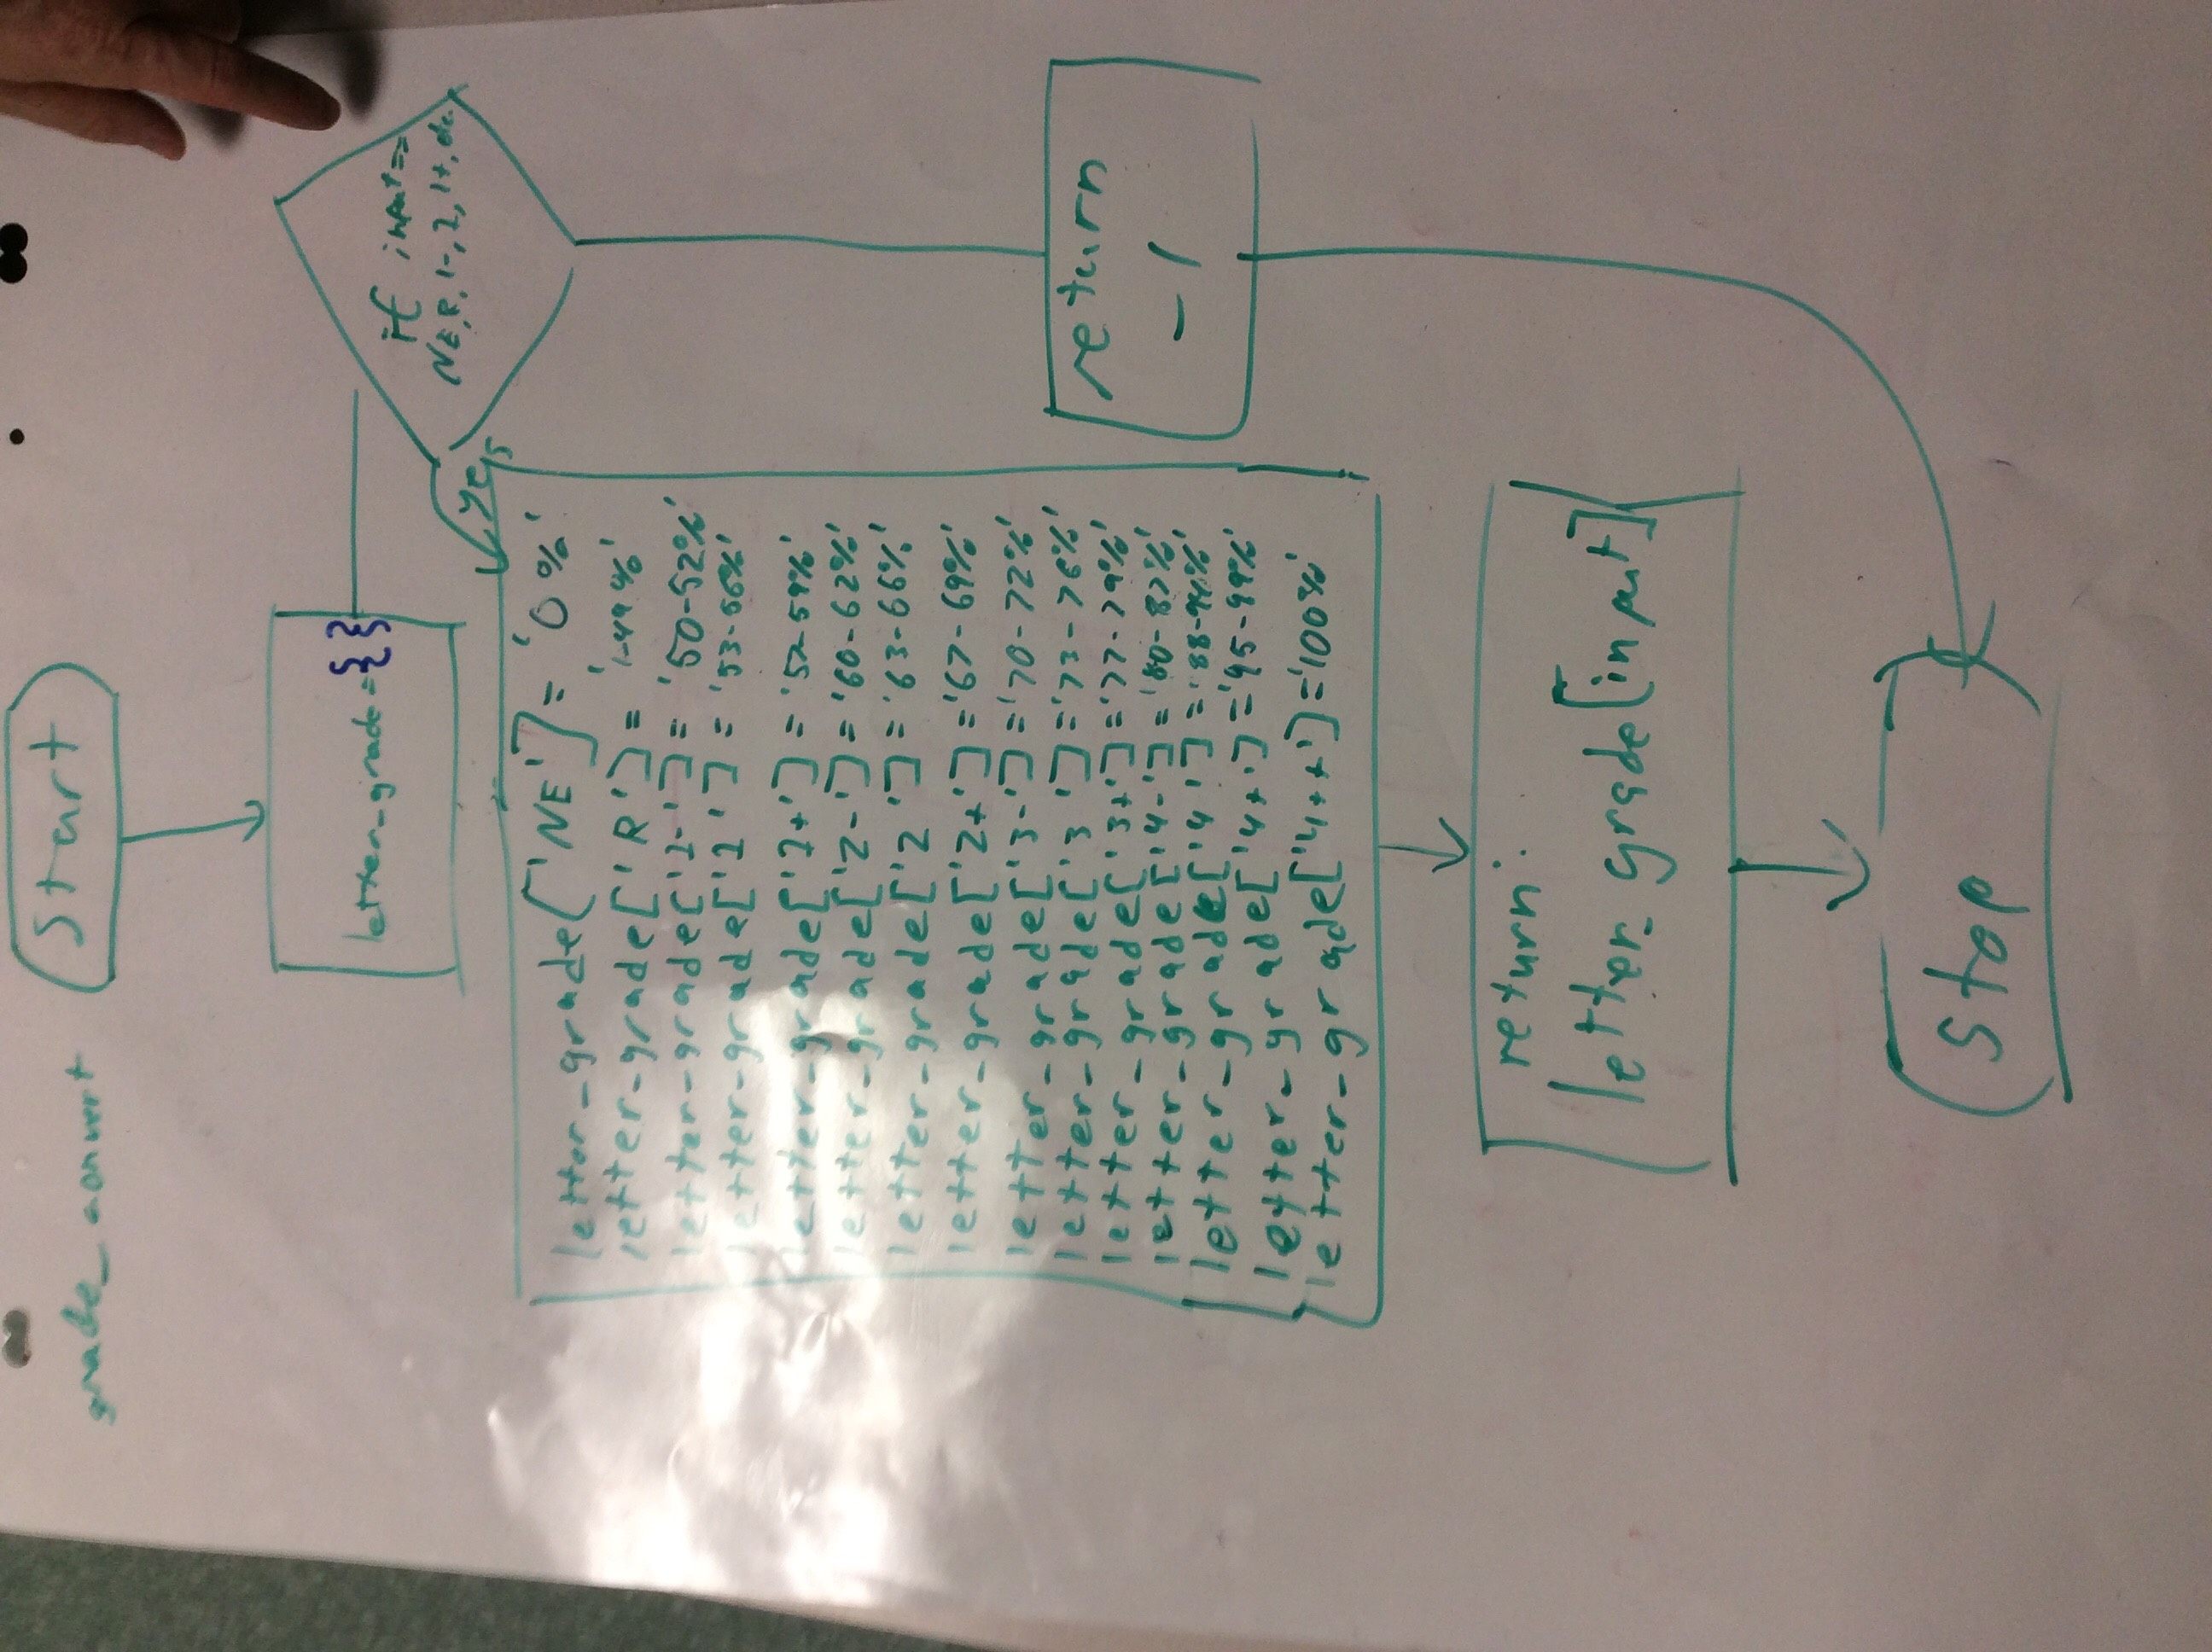 start
grade_convert
letter_grade={}
if input==
NE, R, 1-, 1, 1+, etc.
yes
letter_grade['NE']= '0%'
letter_grade['R']= '1-49%'
letter_grade['1-']= '50-52%'
letter_grade['1']= '53-56%'
letter_grade['1+']= '57-59%'
letter_grade['2-']= '60-62%'
letter_grade['2']= '63-66%'
letter_grade['2+']='67-69%'
letter_grade['3-']='70-72%'
letter_grade['3']='73-76%'
letter_grade['3+']='77-79%'
letter_grade['4-']='80-87%'
letter_grade['4']='88-94%'
letter_grade['4+']='95-99%'
letter_grade['4++']='100%'
return
-1
return:
letter_grade[input]
stop